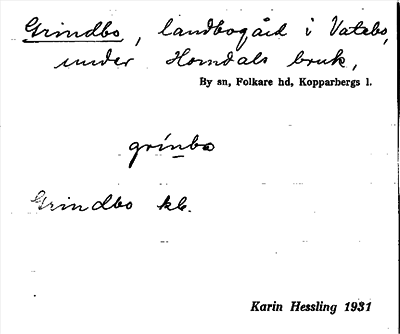 Grindbo, landbogård i Vatebo,
under Horndals bruk,
By sn, Folkare hd, Kopparbergs l.
grı́nbo
Grindbo kb.
Karin Hessling 1931